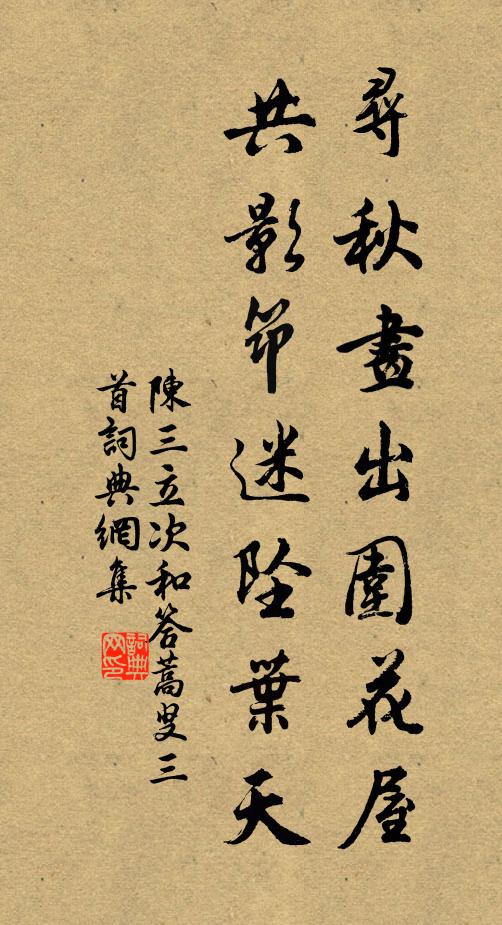 尋秋畫出圍花屋
共影筇迷墜葉天
陳三立次和答蒿叟三
首詞典網集
詞典网印